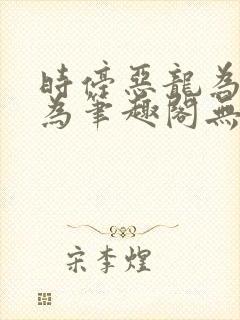 時停惡龍為
為筆趣閣無
宋李煌